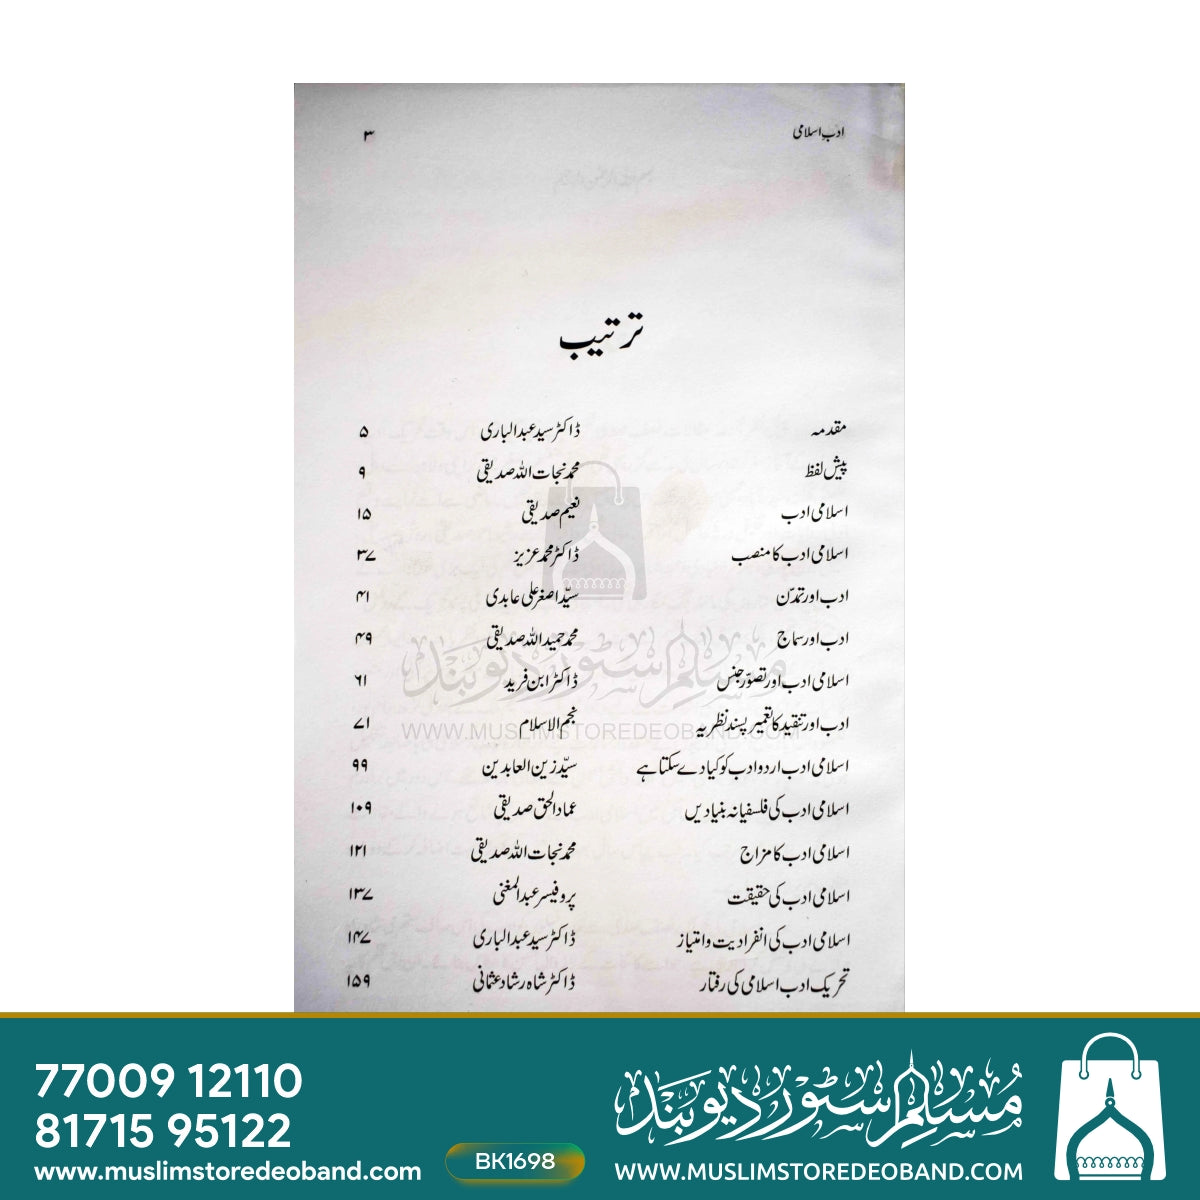 ادب اسلامی ۳
ترتیب
مقدمہ ڈاکٹر سید عبدالباری ۵
پیش لفظ محمد نجات اللہ صدیقی ۹
اسلامی ادب نعیم صدیقی ۱۵
اسلامی ادب کا منصب ڈاکٹر محمد عزیز ۳۷
ادب اور تمدّن سیّد اصغر علی عابدی ۴۱
ادب اور سماج محمد حمید اللہ صدیقی ۴۹
اسلامی ادب اور تصوّر جنس ڈاکٹر ابن فرید ۶۱
ادب اور تنقید کا تعمیر پسند نظریہ نجم الاسلام ۷۱
اسلامی ادب اردو ادب کو کیا دے سکتا ہے سیّد زین العابدین ۹۹
اسلامی ادب کی فلسفیانہ بنیادیں عماد الحق صدیقی ۱۰۹
اسلامی ادب کا مزاج محمد نجات اللہ صدیقی ۱۲۱
اسلامی ادب کی حقیقت پروفیسر عبدالمغنی ۱۳۷
اسلامی ادب کی انفرادیت و امتیاز ڈاکٹر سید عبدالباری ۱۴۷
تحریک ادب اسلامی کی رفتار ڈاکٹر شاہ رشاد عثمانی ۱۵۹
مسلم سٹور دیوبند
WWW.MUSLIMSTOREDEOBAND.COM
77009 12110
81715 95122
www.muslimstoredeoband.com
BK1698
مُسلم سٹور دیوبند
WWW.MUSLIMSTOREDEOBAND.COM